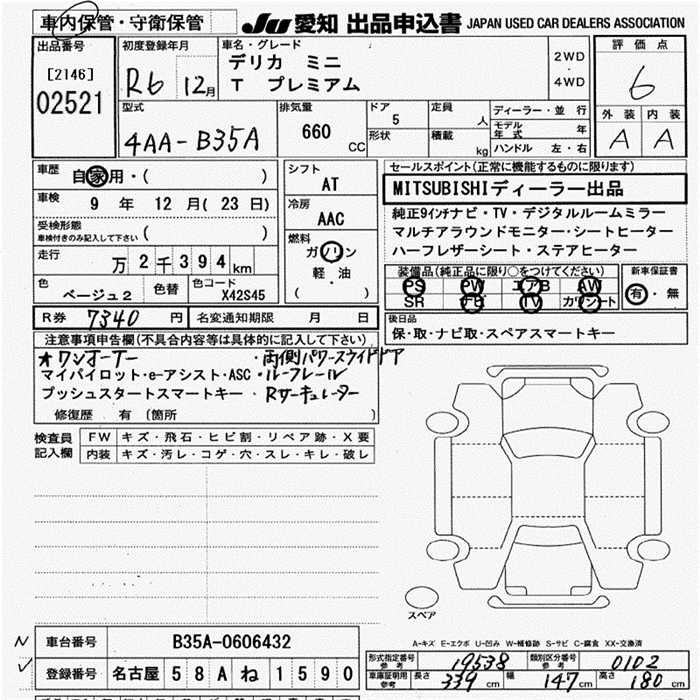 車内保管・守衛保管
JU 愛知 出品申込書 JAPAN USED CAR DEALERS ASSOCIATION
出品番号
[2146]
02521
初度登録年月
R6 12月
車名・グレード
デリカ ミニ
T プレミアム
2WD
・
4WD
評価点
6
外装 内装
A A
型式
4AA-B35A
排気量
660 CC
ドア
5
形状
定員
人
積載
kg
ディーラー・並行
モデル年式 年
ハンドル 左・右
車歴
自家用・( )
車検
9 年 12 月( 23 日)
受検形態
車検付きのみ記入して下さい ( )
走行
万 2 千 3 9 4 km
色
ベージュ2
色替
色コード
X42S45
シフト
AT
冷房
AAC
燃料
ガソリン
軽・油
( )
セールスポイント(正常に機能するものに限ります)
MITSUBISHIディーラー出品
純正9インチナビ・TV・デジタルルームミラー
マルチアラウンドモニター・シートヒーター
ハーフレザーシート・ステアヒーター
装備品(純正品に限り○をつけてください)
PS PW エアB AW
SR ナビ TV カワシート
新車保証書
有・無
R券 7340 円 名変通知期限 月 日
後日品
保・取・ナビ取・スペアスマートキー
注意事項申告欄(不具合内容等は具体的に記入して下さい)
★ワンオーナー ・両側パワースライドドア
マイパイロット・e-アシスト・ASC・ルーフレール
プッシュスタートスマートキー・Rサーキュレーター
修復歴 有 (箇所 )
検査員記入欄
FW キズ・飛石・ヒビ割・リペア跡・X要
内装 キズ・汚レ・コゲ・穴・スレ・キレ・破レ
スペア
A-キズ E-エクボ U-凹み W-補修跡 S-サビ C-腐食 XX-交換済
車台番号 B35A-0606432
登録番号 名古屋 5 8 A ね 1 5 9 0
形式指定番号 参考 19538 類別区分番号 参考 0102
車庫証明用 参考 長さ 339 cm 幅 147 cm 高さ 180 cm